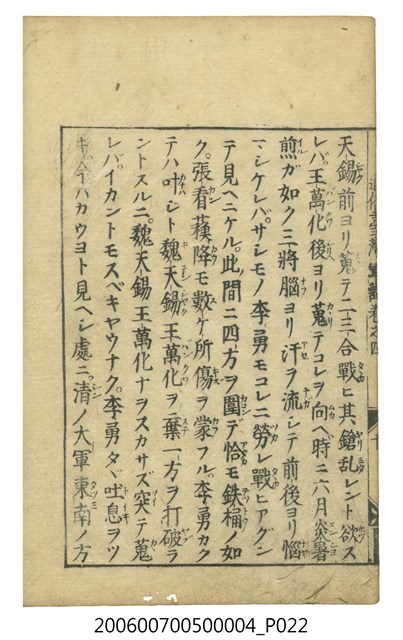 天錫前ヨリ蒐テ一二三合戰ヒ其鎗乱レント欲ス
レバ王萬化後ヨリ蒐テコレヲ向ヘ時ニ六月炎暑
煎ガ如ク三將腦ヨリ汗ヲ流シテ前後ヨリ惱
マシケレバサシモノ李勇モコレニ勞レ戰ヒアグン
テ見ヘニケル此間ニ四方ヲ圍デ恰モ鉄桶ノ如
ク張看蘓降モ數ケ所傷ヲ蒙フル李勇カク
テハ叶ハシト魏天錫王萬化ヲ棄一方ヲ打破ラ
ントスルニ魏天錫王萬化ナヲスカサズ突テ蒐
レバイカントモスベキヤウナク李勇タヾ吐息ヲツ
キ今ハカウヨト見ヘシ處ニ清ノ大軍東南ノ方
200600700500004_P022